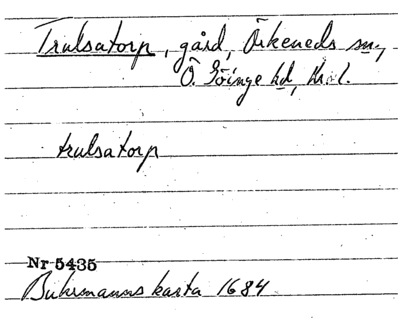 Trulsatorp, gård, Örkeneds sn,
Ö. Göinge hd, Kr. l.
trulsatorp
Nr 5435
Buhrmanns karta 1684